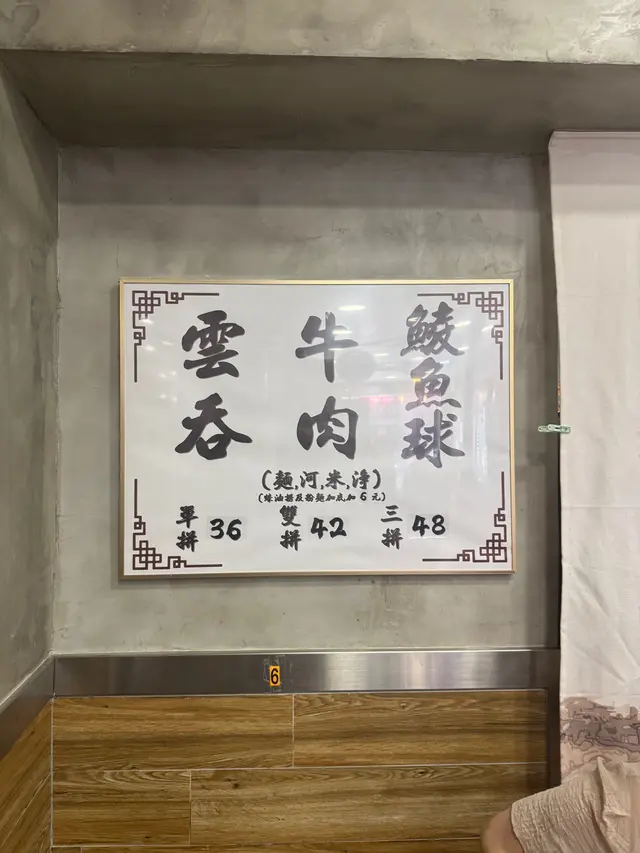 雲吞
牛肉
鯪魚球
(麵,河,米,淨)
(蠔油撈及粉麵加底加6元)
單拼 36
雙拼 42
三拼 48
6